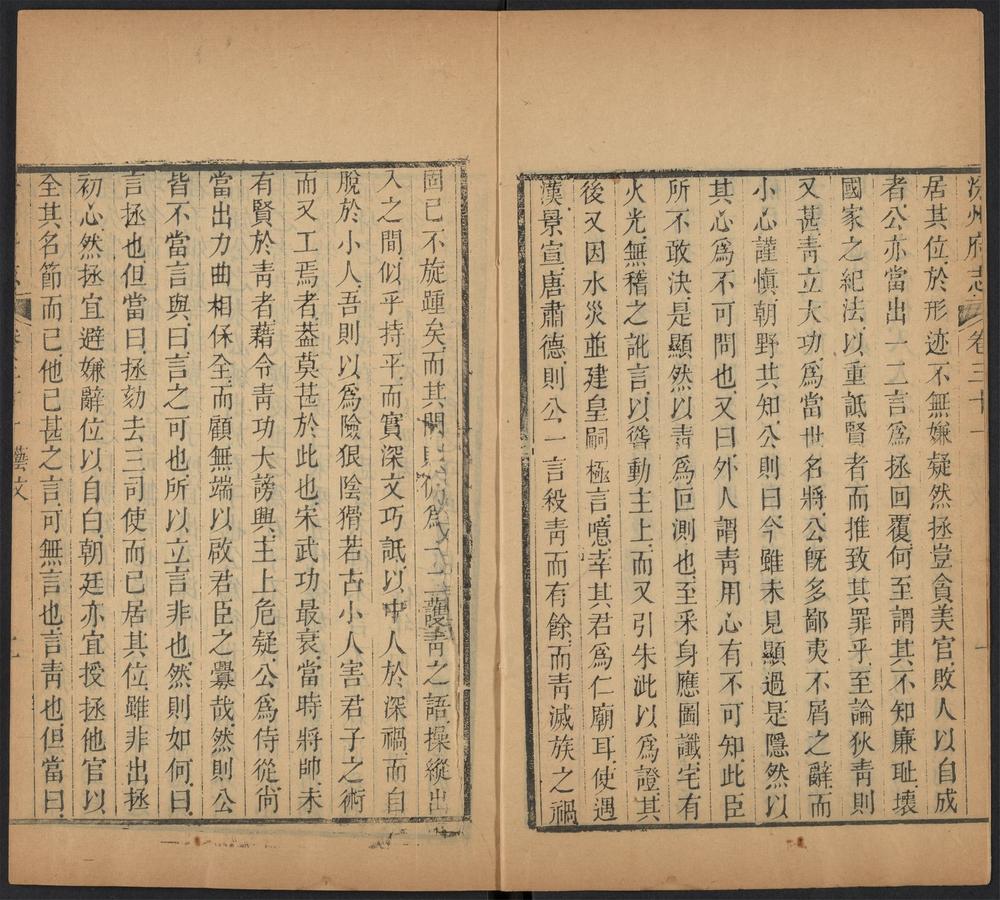 州府志 卷三十一
居其位於形迹不無嫌疑然拯豈貪美官敗人以自成
者公亦當出一二言為拯回覆何至謂其不知廉耻壞
國家之紀法以重詆賢者而推致其罪乎至論狄靑則
又甚靑立大功為當世名將公旣多鄙夷不屑之辭而
小心謹愼朝野共知公則曰今雖未見顯過是隱然以
其心爲不可問也又曰外人謂靑用心有不可知此臣
所不敢決是顯然以靑爲叵測也至釆身應圖讖宅有
火光無稽之訛言以聳動主上而又引朱泚以爲證其
後又因水災並建皇嗣極言噫幸其君爲仁廟耳使遇
漢景宣唐肅德則公一言殺靑而有餘而靑滅族之禍
固已不旋踵矣而其間則爲一二護靑之語操縱出
入之間似乎持平而實深文巧詆以中人於深禍而自
脫於小人吾則以爲險狠陰猾若古小人害君子之術
而又工焉者葢莫甚於此也宋武功最衰當時將帥未
有賢於靑者藉令靑功大謗興主上危疑公爲侍從尙
當出力曲相保全而顧無端以啟君臣之釁哉然則公
皆不當言與曰言之可也所以立言非也然則如何曰
言拯也但當曰拯劾去三司使而已居其位雖非出拯
初心然拯宜避嫌辭位以自白朝廷亦宜授拯他官以
全其名節而已他已甚之言可無言也言靑也但當曰
藝文